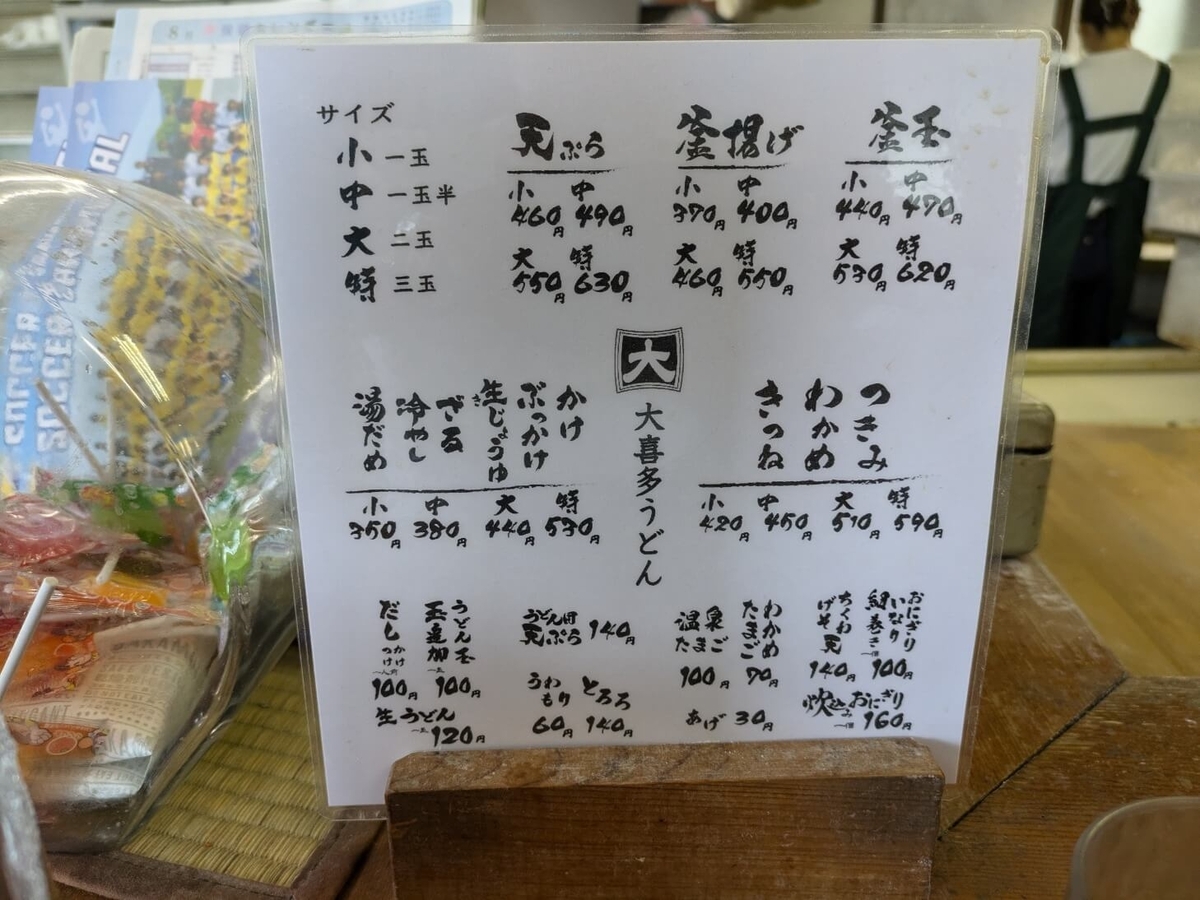 サイズ
小 一玉
中 一玉半
大 二玉
特 三玉
天ぷら
小 中
460円 490円
大 特
550円 630円
釜揚げ
小 中
370円 400円
大 特
460円 550円
釜玉
小 中
440円 470円
大 特
530円 620円
大
大喜多うどん
かけ
ぶっかけ
生じょうゆ
き
ざる
冷やし
湯だめ
小 中 大 特
350円 380円 440円 530円
つきみ
わかめ
きつね
小 中 大 特
420円 450円 510円 590円
だし
かけ
つけ
100円
うどん玉
玉追加
100円
生うどん
120円
うどん用
天ぷら 140円
うわもり
60円
とろろ
140円
温泉たまご
100円
わかめ
たまご
70円
あげ 30円
ちくわ
げそ天
140円
おにぎり
いなり
細巻き
100円
炊込みおにぎり
160円
8月
SOCCER
SOCCER